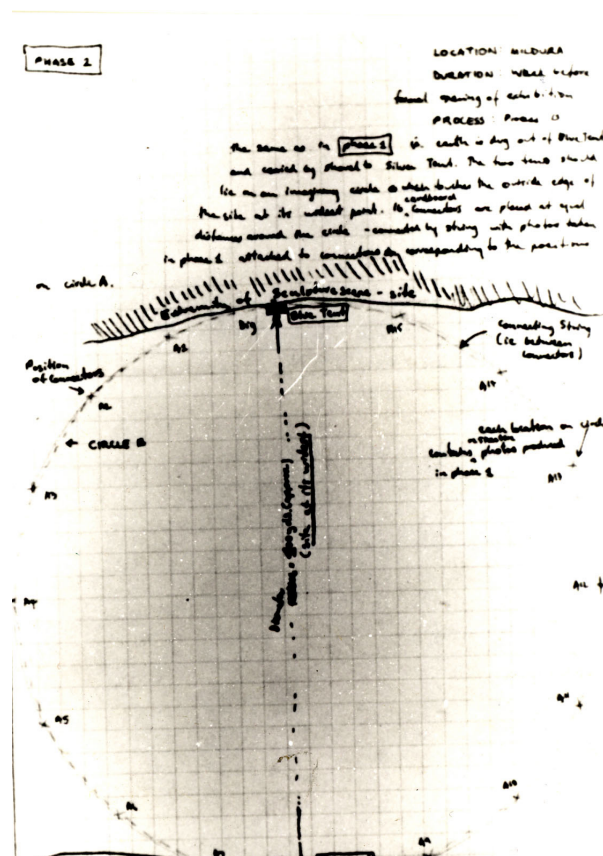 PHASE 2
LOCATION: MILDURA
DURATION: Week before
formal opening of exhibition
PROCESS: Process is
the same as in phase 1 ie. earth is dug out of Blue Tent
and carried by shovel to Silver Tent. The two tents should
lie on an imaginary circle which touches the outside edge of
the site at its widest point. 16 cardboard connectors are placed at equal
distances around the circle - connected by string with photos taken
in phase 1 attached to connectors corresponding to the positions
on circle A.
Extremity of Sculpturescene - site
Blue Tent
A15
Connecting String
(ie between
connectors)
Position
of Connectors
CIRCLE B
A14
each location on circle
contains photos produced
in phase 1
A13
A3
(site at its widest)
Diameter
A4
A12
A5
A11
A6
A10
A9